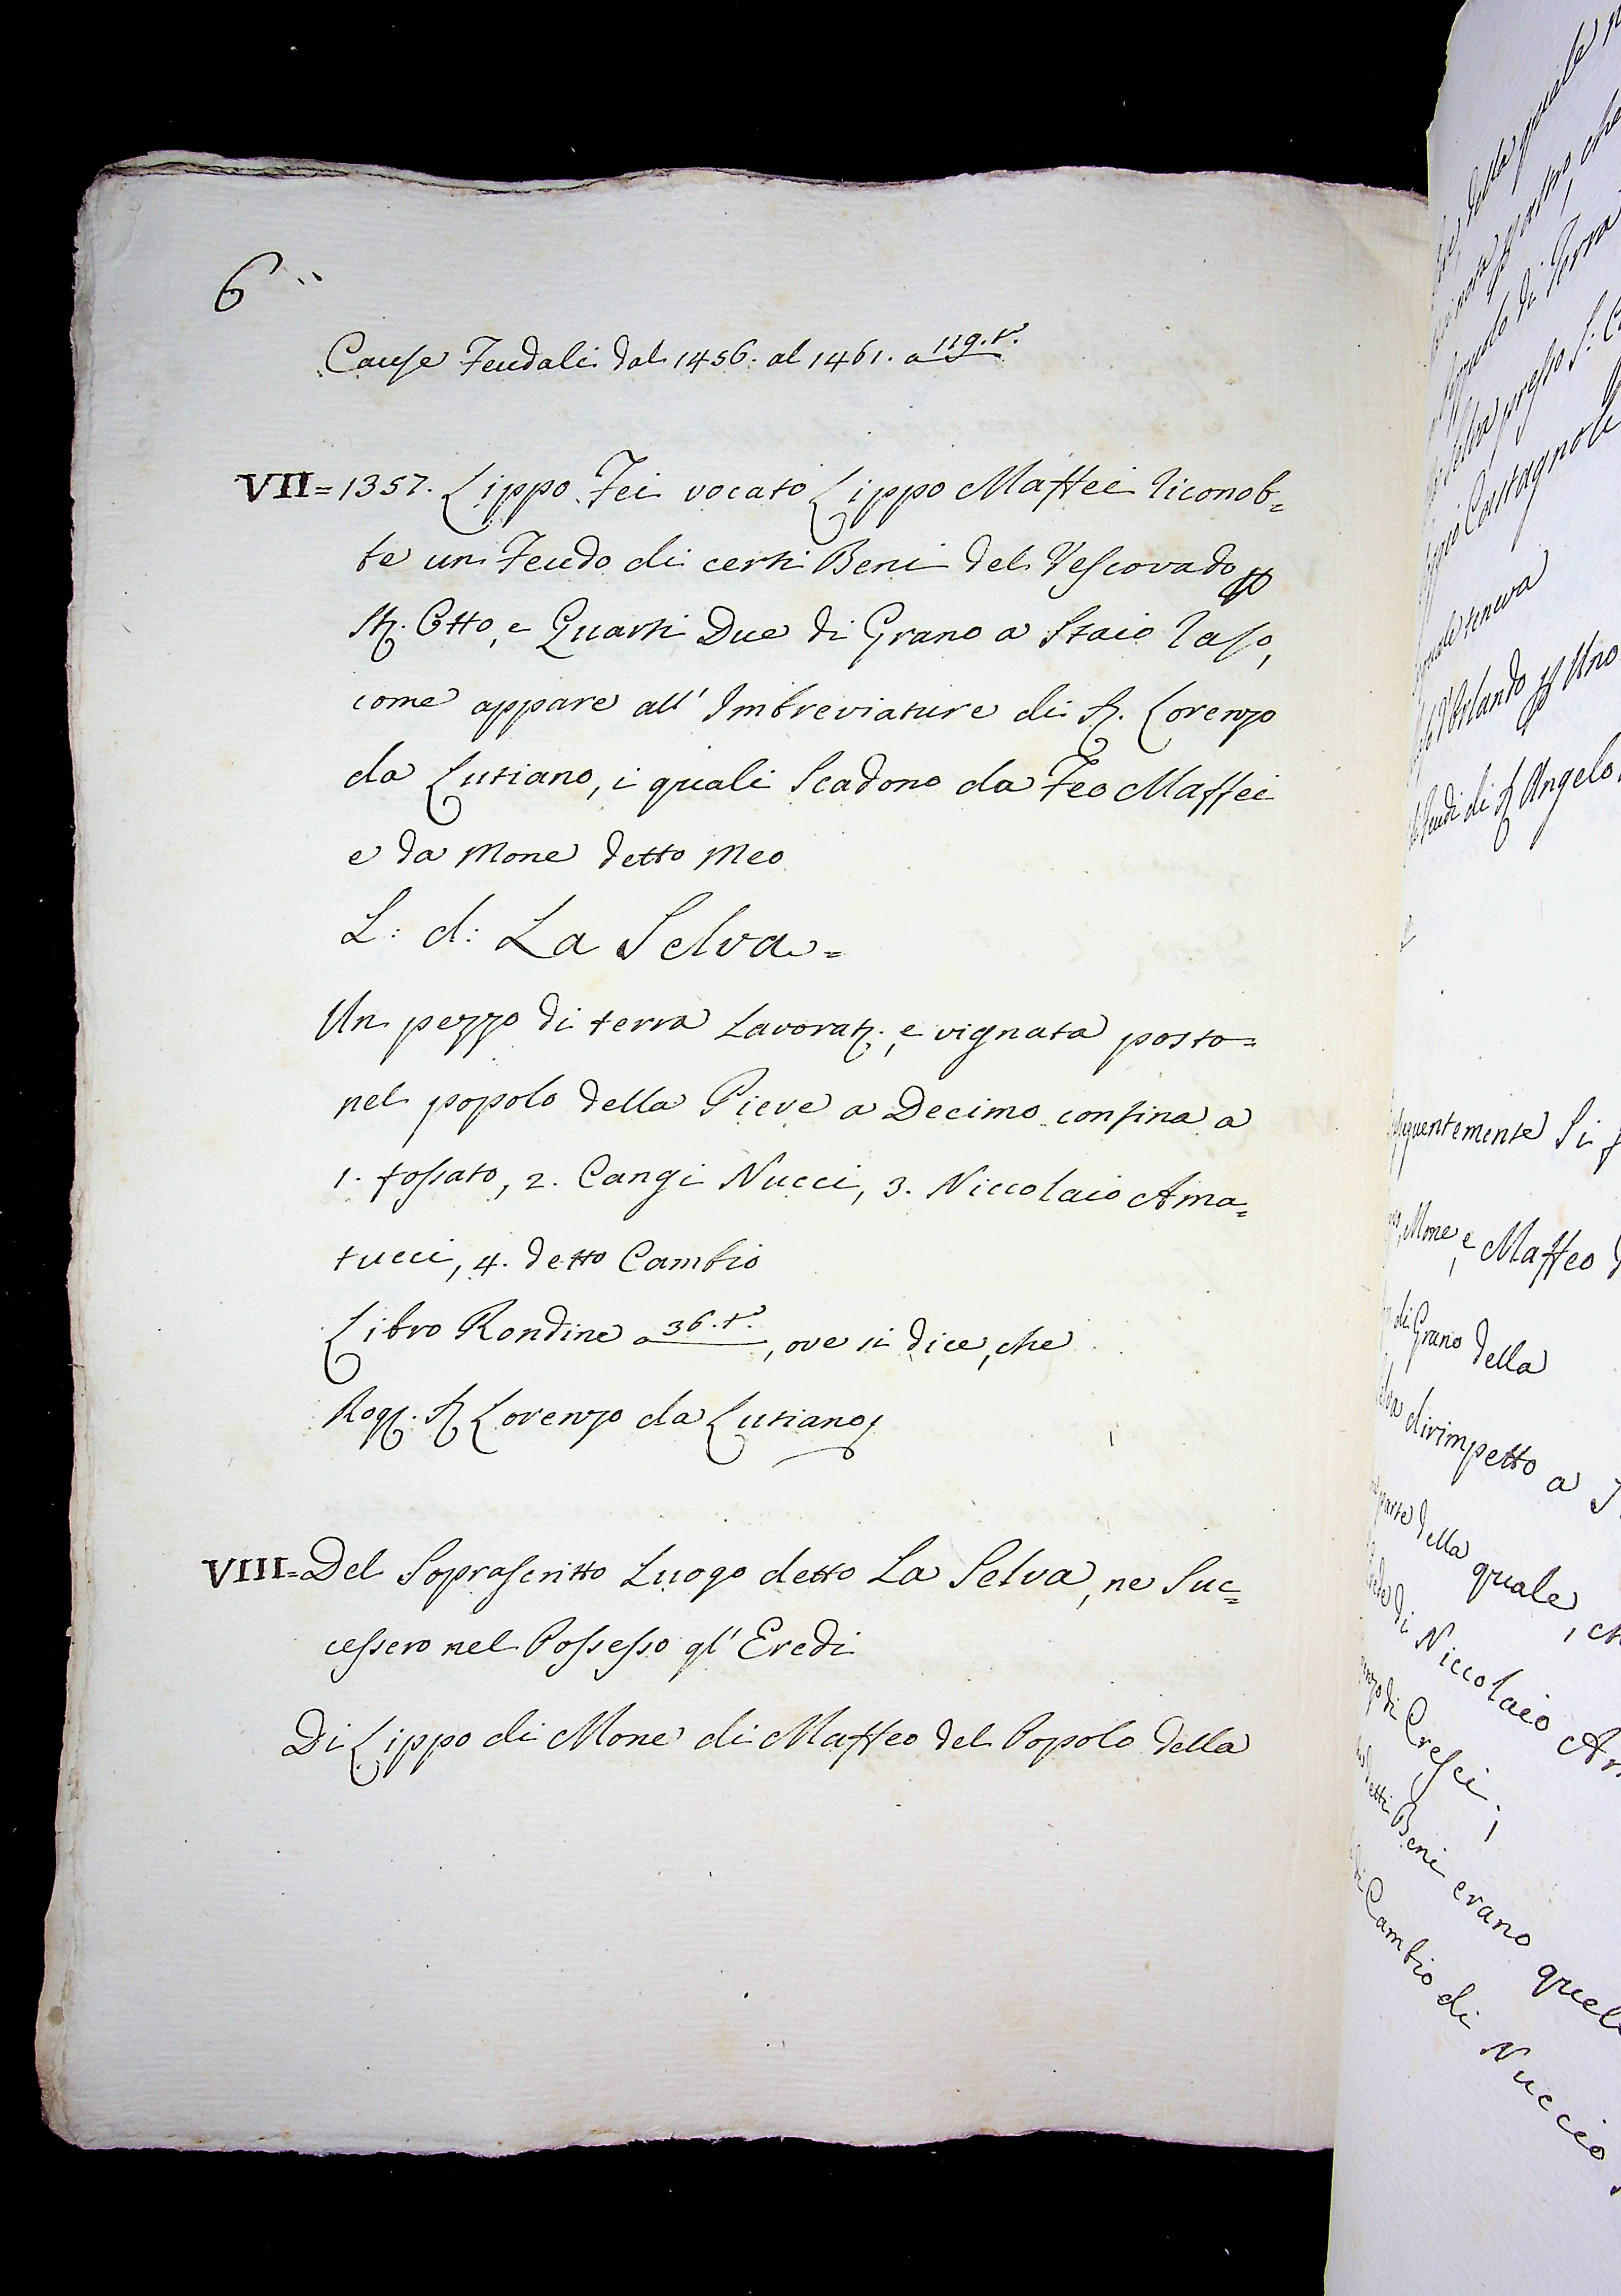 6
Cause Feudali dal 1456. al 1461. a 119. t.º
VII = 1357. Lippo Fei vocato Lippo Maffei riconob=
be un Feudo di certi Beni del Vescovado p
St. Otto, e Quarti Due di Grano a Staio raso,
come appare all' Imbreviature di S. Lorenzo
da Lutiano, i quali Scadono da Feo Maffei
e da Mone detto Meo
L: d: La Selva =
Un pezzo di terra Lavorat., e vignata posto =
nel popolo della Pieve a Decimo confina a
1. fossato, 2. Cangi Nucci, 3. Niccolaio Ama=
tucci, 4. detto Cambio
Libro Rondine a 36. t.º, ove si dice, che
Rog. S. Lorenzo da Lutiano
VIII = Del Soprascritto Luogo detto La Selva, ne Suc=
cessero nel Possesso gl' Eredi
Di Lippo di Mone di Maffeo del Popolo della
della quale
che
di Terra
presso S.
Castagnoli
d'Orlando p Uno
di S Angelo
Si
Mone, e Maffeo
di Grano della
dirimpetto a
parte della quale,
di Niccolaio
di Cresci;
detti Beni erano
di Cambio di Nuccio